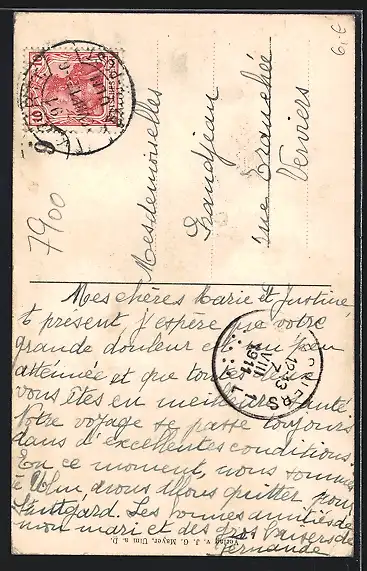 Mesdemoiselles
Grandjean
rue Tranchée
Verviers
7900
6.€
10
VERVIERS
12-13
7
VIII
1911
Mes chères Marie et Justine
à présent j'espère que votre
grande douleur est un peu
atténuée et que toutes deux
vous êtes en meilleure santé
Notre voyage se passe toujours
dans d'excellentes conditions.
En ce moment, nous sommes
à Ulm, nous allons quitter pour
Stuttgard. Les bonnes amitiés de
mon mari et des gros baisers de
Fernande
Verlag v. J. G. Mayer, Ulm a. D.